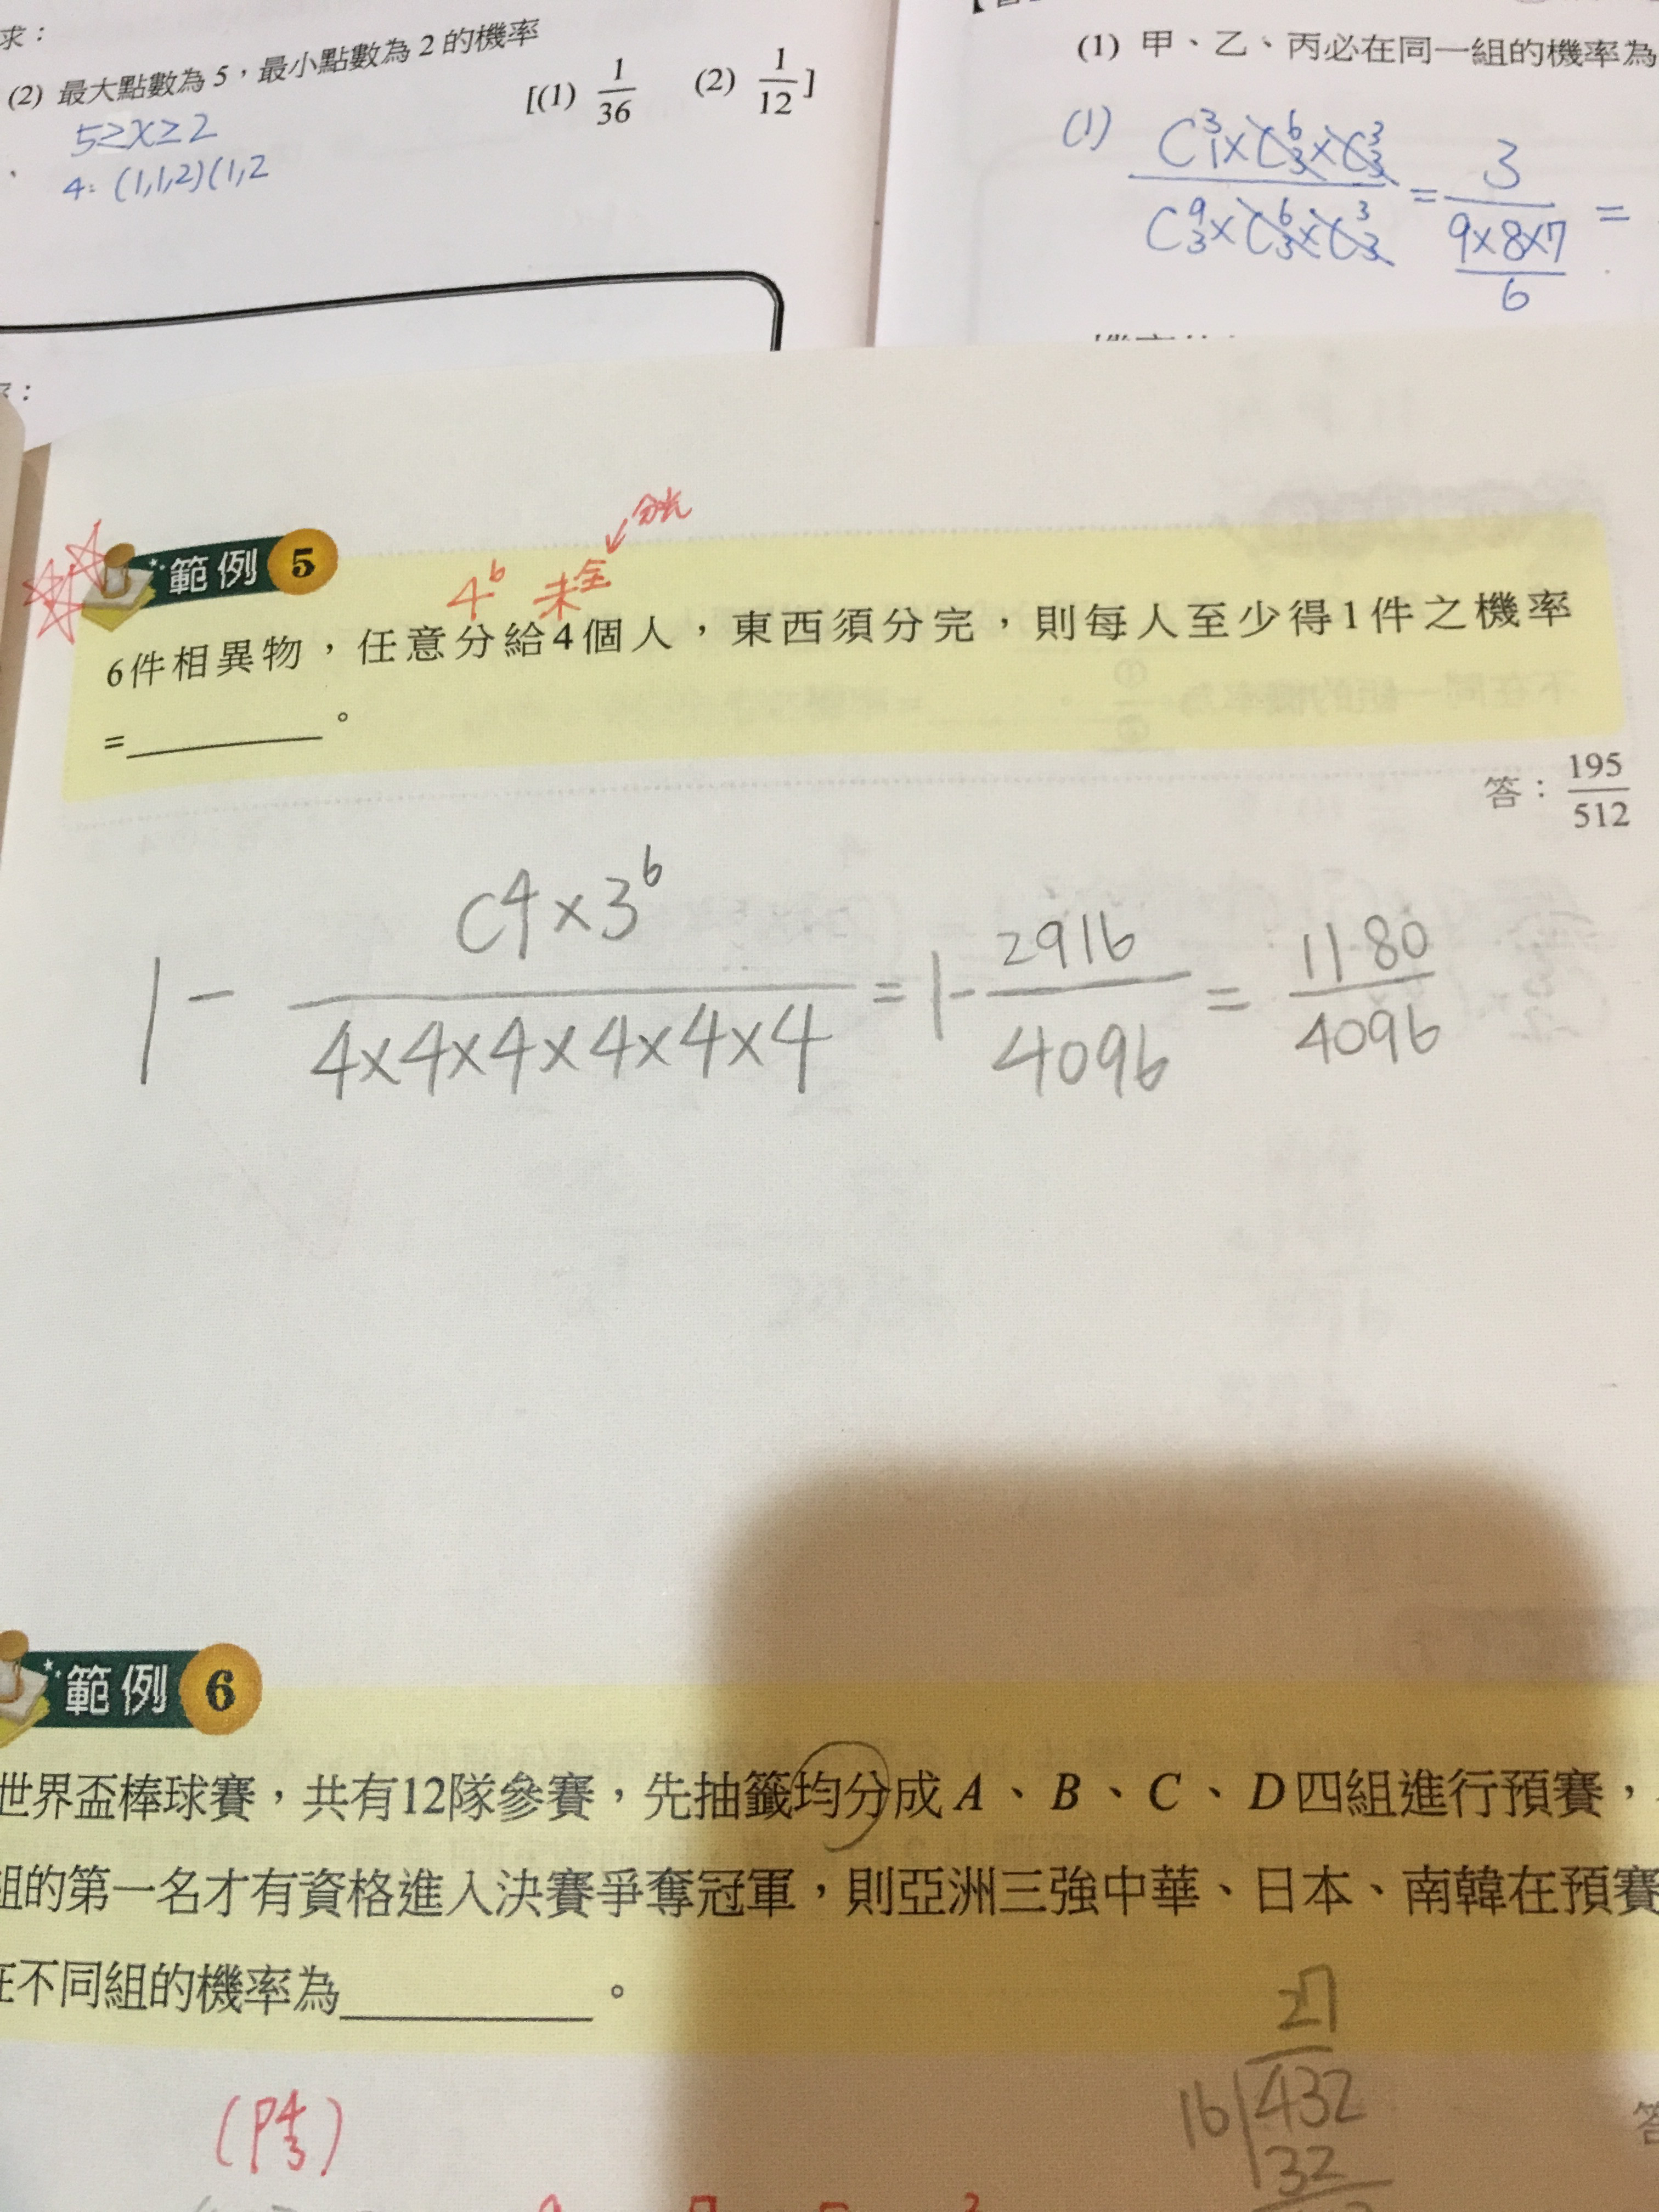 求：
(2) 最大點數為 5，最小點數為 2 的機率
[(1) 1/36 (2) 1/12]
5≥x≥2
4: (1,1,2)(1,2
(1) 甲、乙、丙必在同一組的機率為
(1) C³₁×C⁶₃×C³₃ / C⁹₃×C⁶₃×C³₃ = 3 / (9×8×7 / 6) =
範例 5
4⁶ 未全
6件相異物，任意分給4個人，東西須分完，則每人至少得1件之機率
=________。
答：195/512
1 - C4×3⁶ / 4×4×4×4×4×4 = 1 - 2916/4096 = 1180/4096
範例 6
世界盃棒球賽，共有12隊參賽，先抽籤均分成 A、B、C、D四組進行預賽，
組的第一名才有資格進入決賽爭奪冠軍，則亞洲三強中華、日本、南韓在預賽
在不同組的機率為________。
27
16 432
32
(P⁴₃)
答